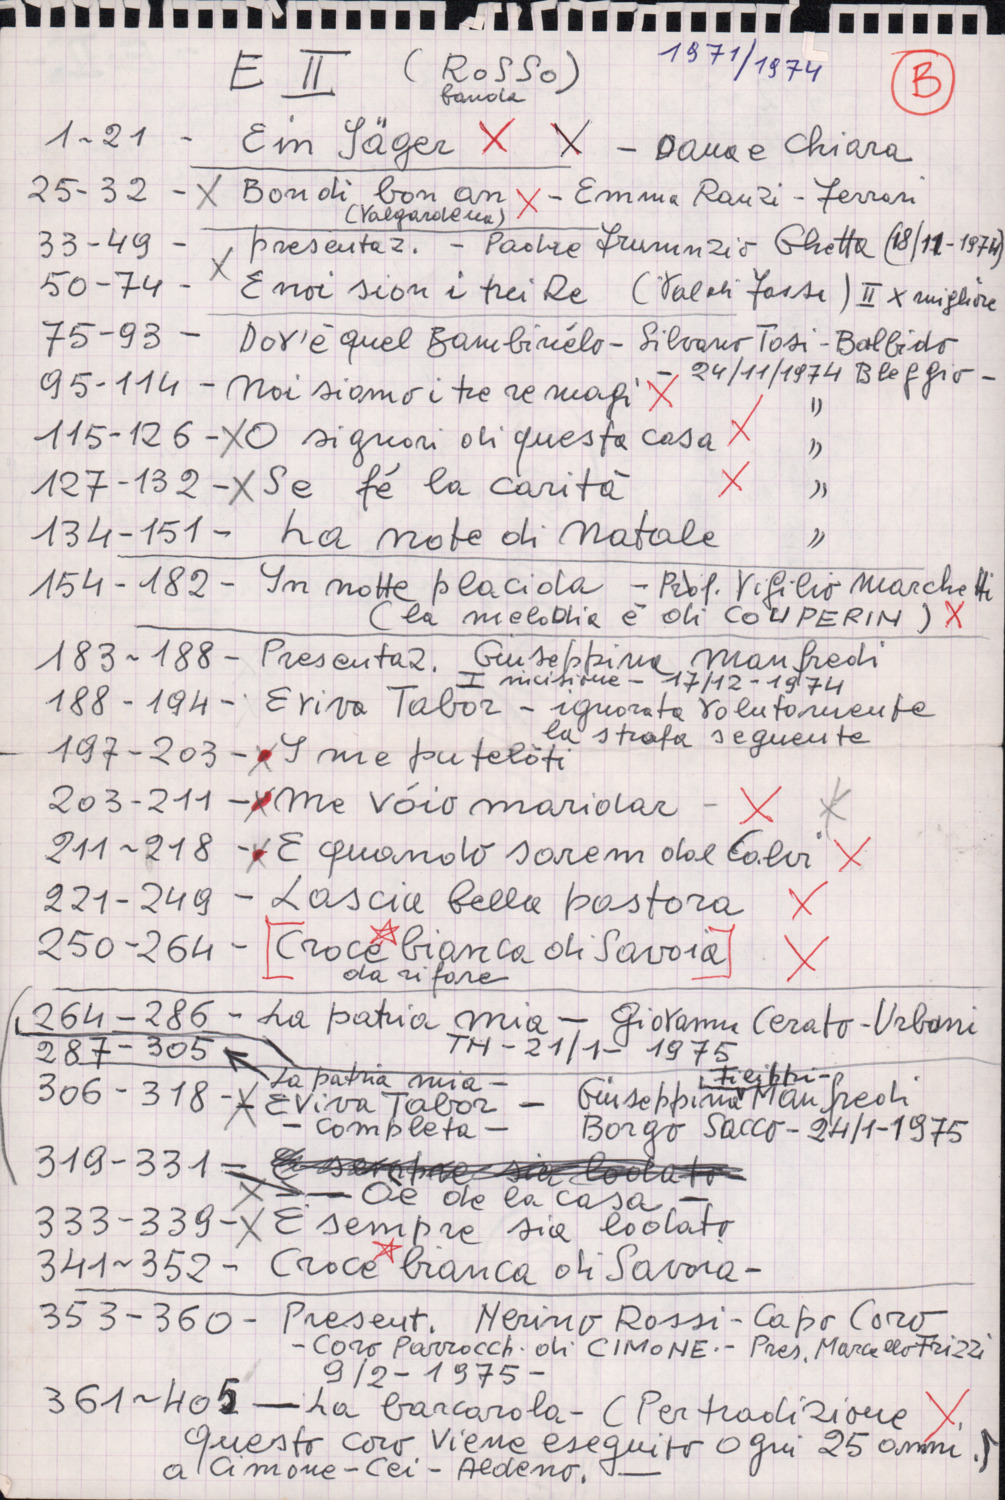 E II (ROSSO) 1971/1974 B
banda
1~21 - Ein Jäger X X - Dana e Chiara
25-32 - X Bondi bon an X - Emma Ranzi - Ferrari
(Valgardena)
33-49 - presentaz. - Padre Frumenzio Ghetta (18/11-1974)
50-74 - X E noi sion i trei Re (Val di Fassa) II X migliore
75-93 - Dov'è quel Bambinélo - Silvano Tosi - Balbido
- 24/11/1974 Bleggio -
95-114 - Noi siamo i tre re magi X "
115-126 - X O signori di questa casa X "
127-132 - X Se fé la carità X "
134-151 - La note di Natale "
154-182 - In notte placida - Prof. Vigilio Marchetti
(la melodia è di COUPERIN) X
183~188 - Presentaz. Giuseppina Manfredi
I incisione - 17/12-1974
188-194 - Eviva Tabor - ignorata volutamente
la strofa seguente
197-203 - X I me putelòti
203-211 - X Me vóio maridar - X X
211~218 - X E quando sarem dal Calvi X
221-249 - Lascia bella pastora X
250-264 - [Croce bianca di Savoia] X
da rifare
264-286 - La patria mia - Giovanni Cerato - Urbani
TN - 21/1 - 1975
287-305
La patria mia - Filippi -
306-318 - X Eviva Tabor - Giuseppina Manfredi
- Completa - Borgo Sacco - 24/1-1975
319-331 = E sempre sia lodato
X - Oè de la casa -
333-339 - X E sempre sia lodato
341~352 - Croce bianca di Savoia -
353-360 - Present. Nerino Rossi - Capo Coro
- Coro Parrocch. di CIMONE. - Pres. Marcello Frizzi
9/2 - 1975 -
361~405 - La barcarola - (Per tradizione X
questo coro viene eseguito ogni 25 anni.)
a Cimone - Cei - Aldeno. -